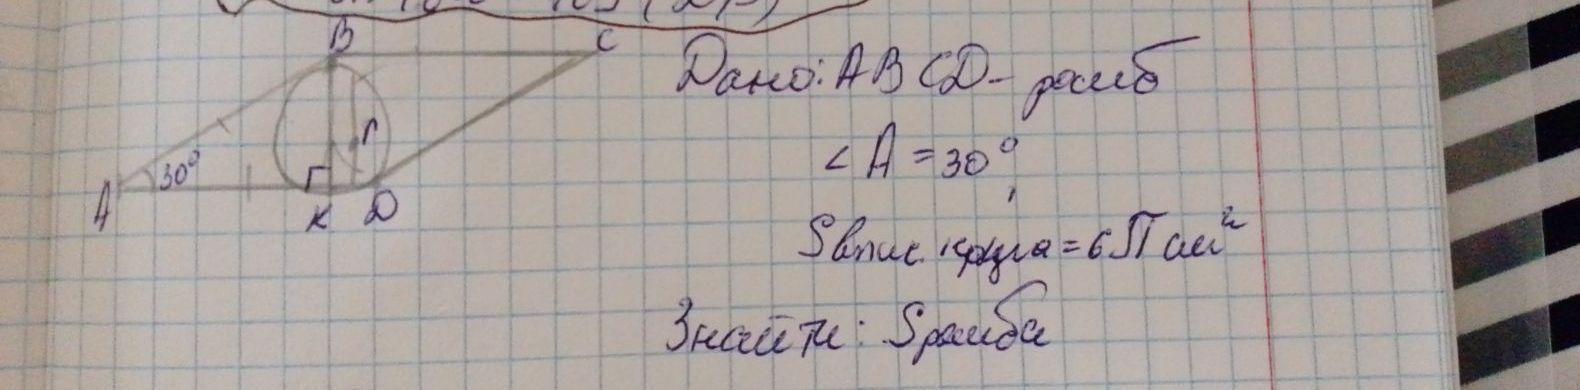 B
C
A
30°
r
K
D
Дано: ABCD - ромб
∠A = 30°,
Sвпис. круга = 6π см²
Знайти: Sромба